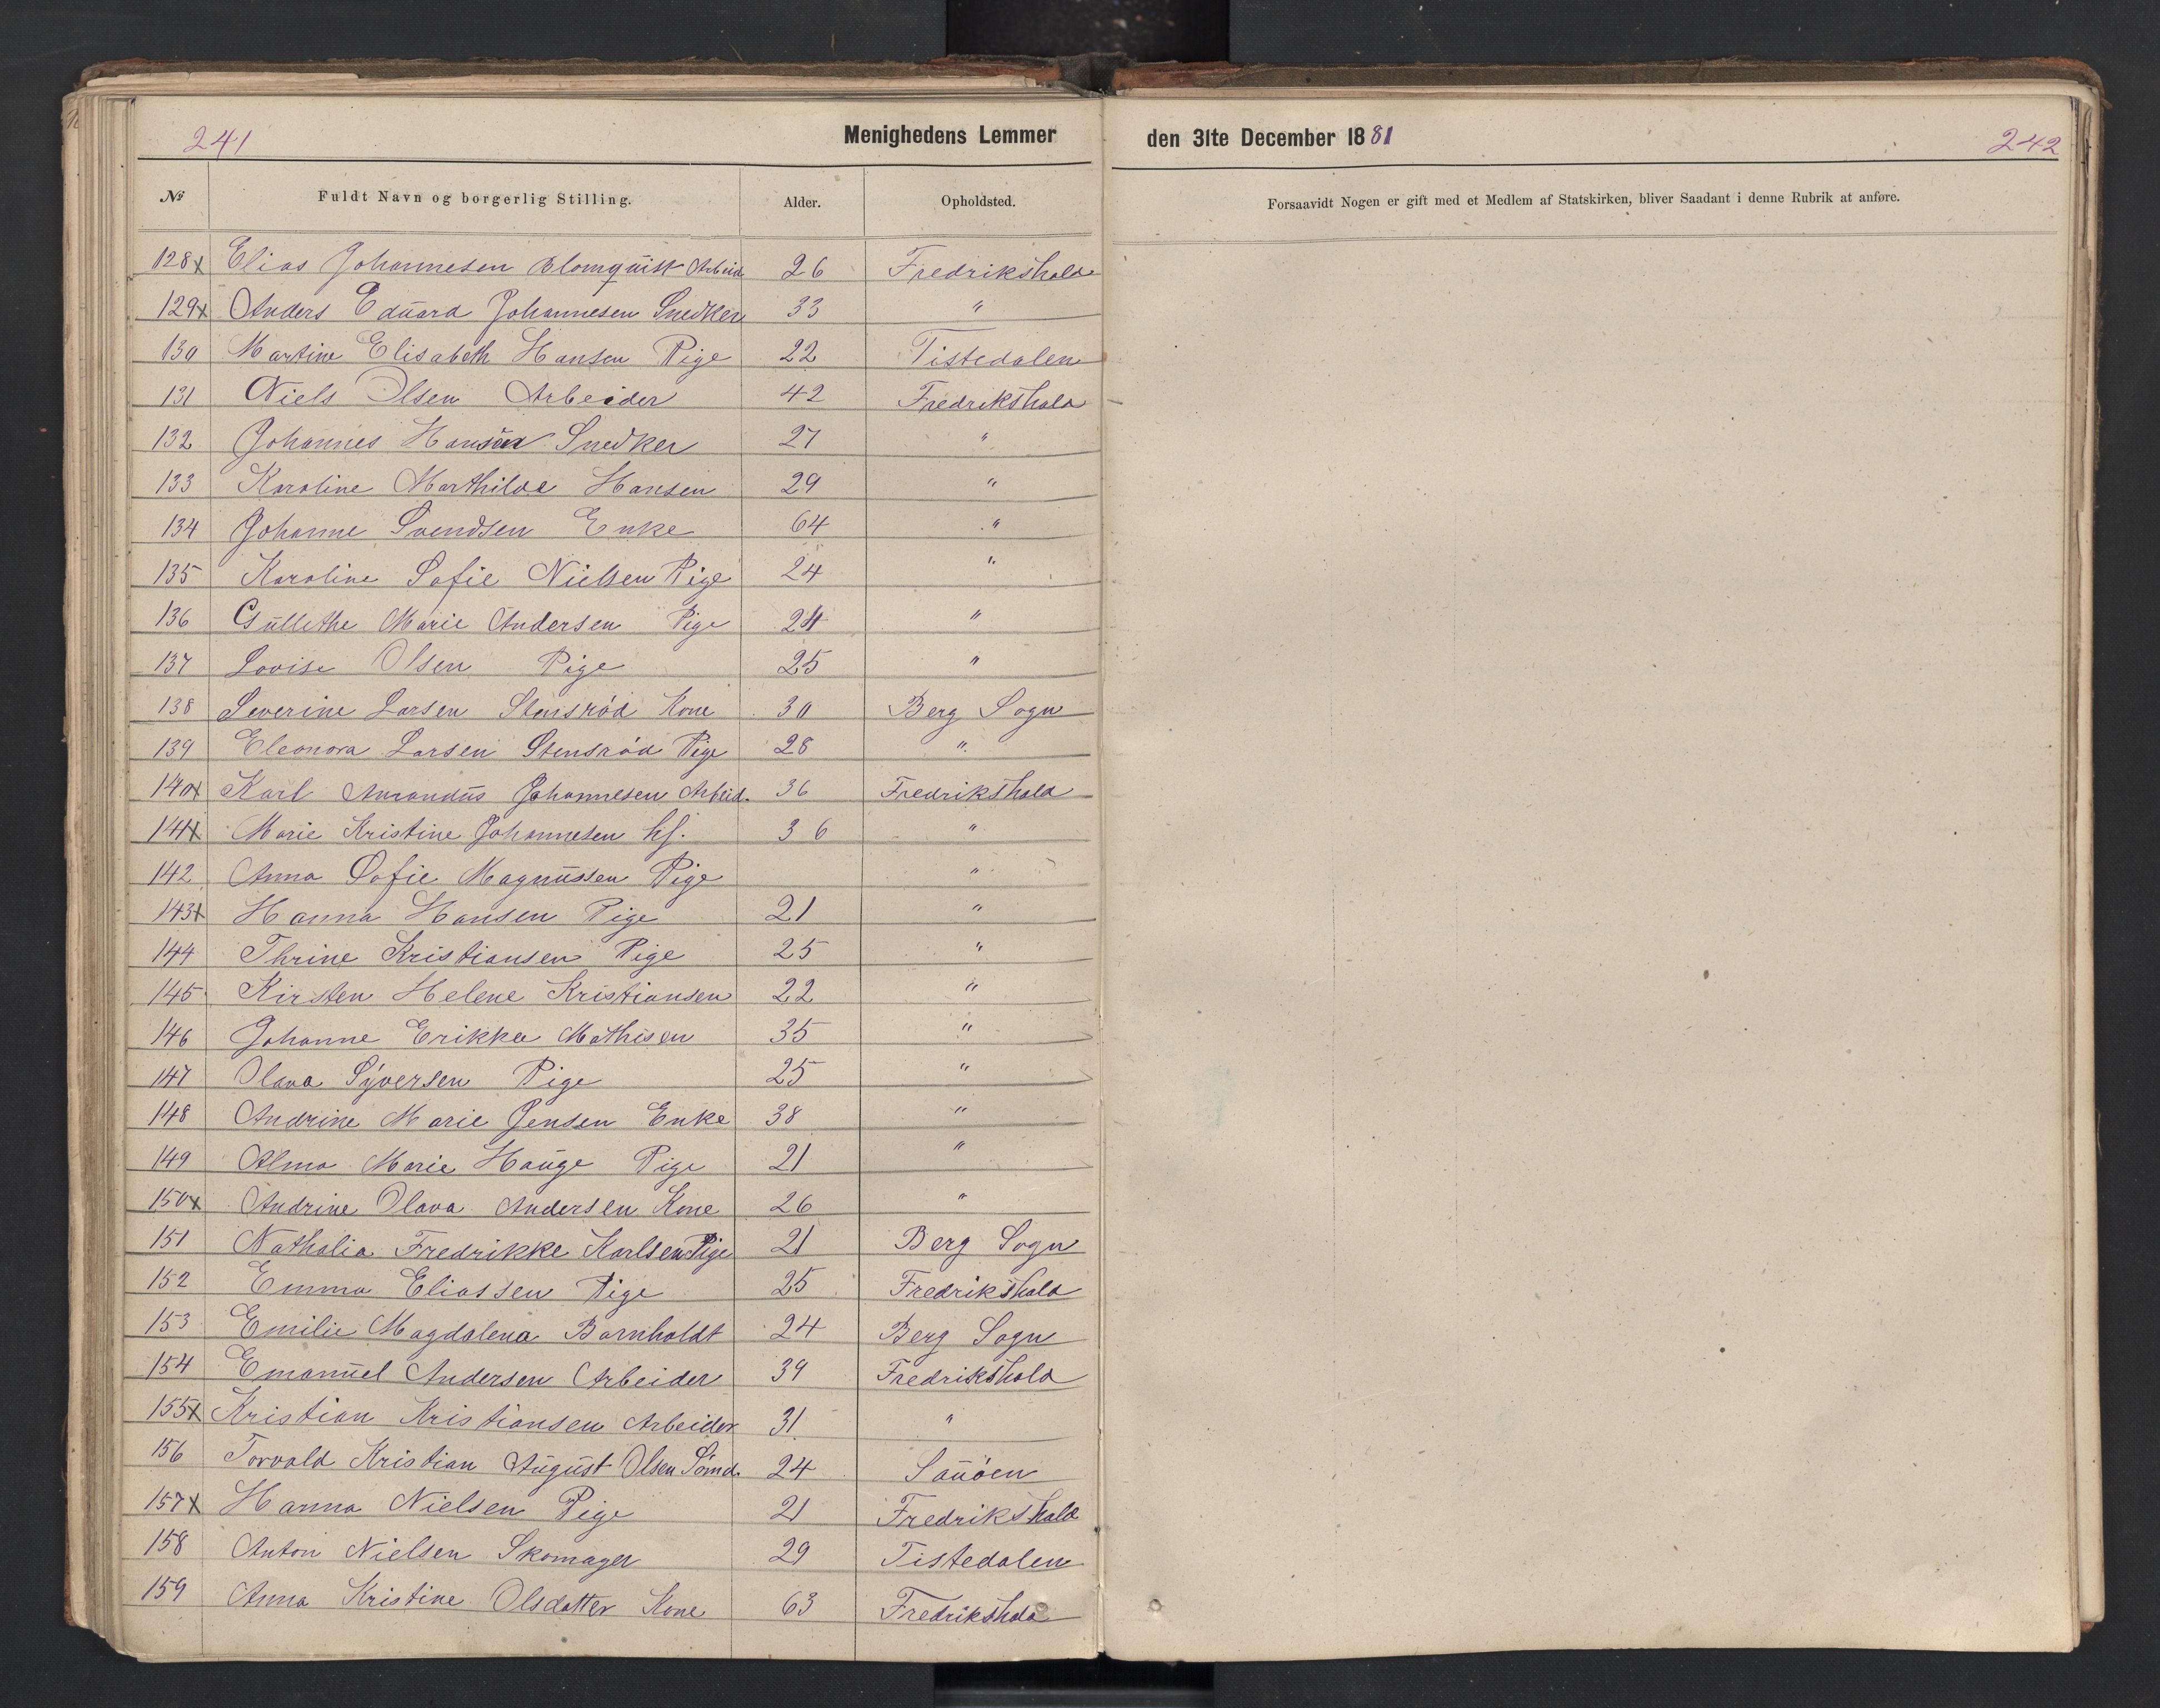 241
Menighedens Lemmer
den 31te December 1881
242
No Fuldt Navn og borgerlig Stilling. Alder. Opholdsted.
Forsaavidt Nogen er gift med et Medlem af Statskirken, bliver Saadant i denne Rubrik at anføre.
128x Elias Johannesen Blomquist Arbeid. 26 Fredrikshald
129x Anders Eduard Johannesen Snedker 33 "
130 Martine Elisabeth Hansen Pige 22 Tistedalen
131 Niels Olsen Arbeider 42 Fredrikshald
132 Johannes Hansen Snedker 27 "
133 Karoline Marthilde Hansen 29 "
134 Johanne Svendsen Enke 64 "
135 Karoline Sofie Nielsen Pige 24 "
136 Gullethe Marie Andersen Pige 24 "
137 Lovise Olsen Pige 25 "
138 Severine Larsen Stensrød Kone 30 Berg Sogn
139 Eleonora Larsen Stensrød Pige 28 "
140x Karl Amandus Johannesen Arbeid. 36 Fredrikshald
141x Marie Kristine Johannesen hf. 36 "
142 Anna Sofie Magnussen Pige "
143x Hanna Hansen Pige 21 "
144 Thrine Kristiansen Pige 25 "
145 Kirsten Helene Kristiansen 22 "
146 Johanne Erikka Mathisen 35 "
147 Olava Syversen Pige 25 "
148 Andrine Marie Jensen Enke 38 "
149 Alma Marie Hauge Pige 21 "
150x Andrine Olava Andersen Kone 26 "
151 Nathalia Fredrikke Karlsen Pige 21 Berg Sogn
152 Emma Eliassen Pige 25 Fredrikshald
153 Emilie Magdalena Bornholdt 24 Berg Sogn
154 Emanuel Andersen Arbeider 39 Fredrikshald
155x Kristian Kristiansen Arbeider 31 "
156 Torvald Kristian August Olsen Sømd. 24 Sauøen
157x Hanna Nielsen Pige 21 Fredrikshald
158 Anton Nielsen Skomager 29 Tistedalen
159 Anna Kristine Olsdatter Kone 63 Fredrikshald